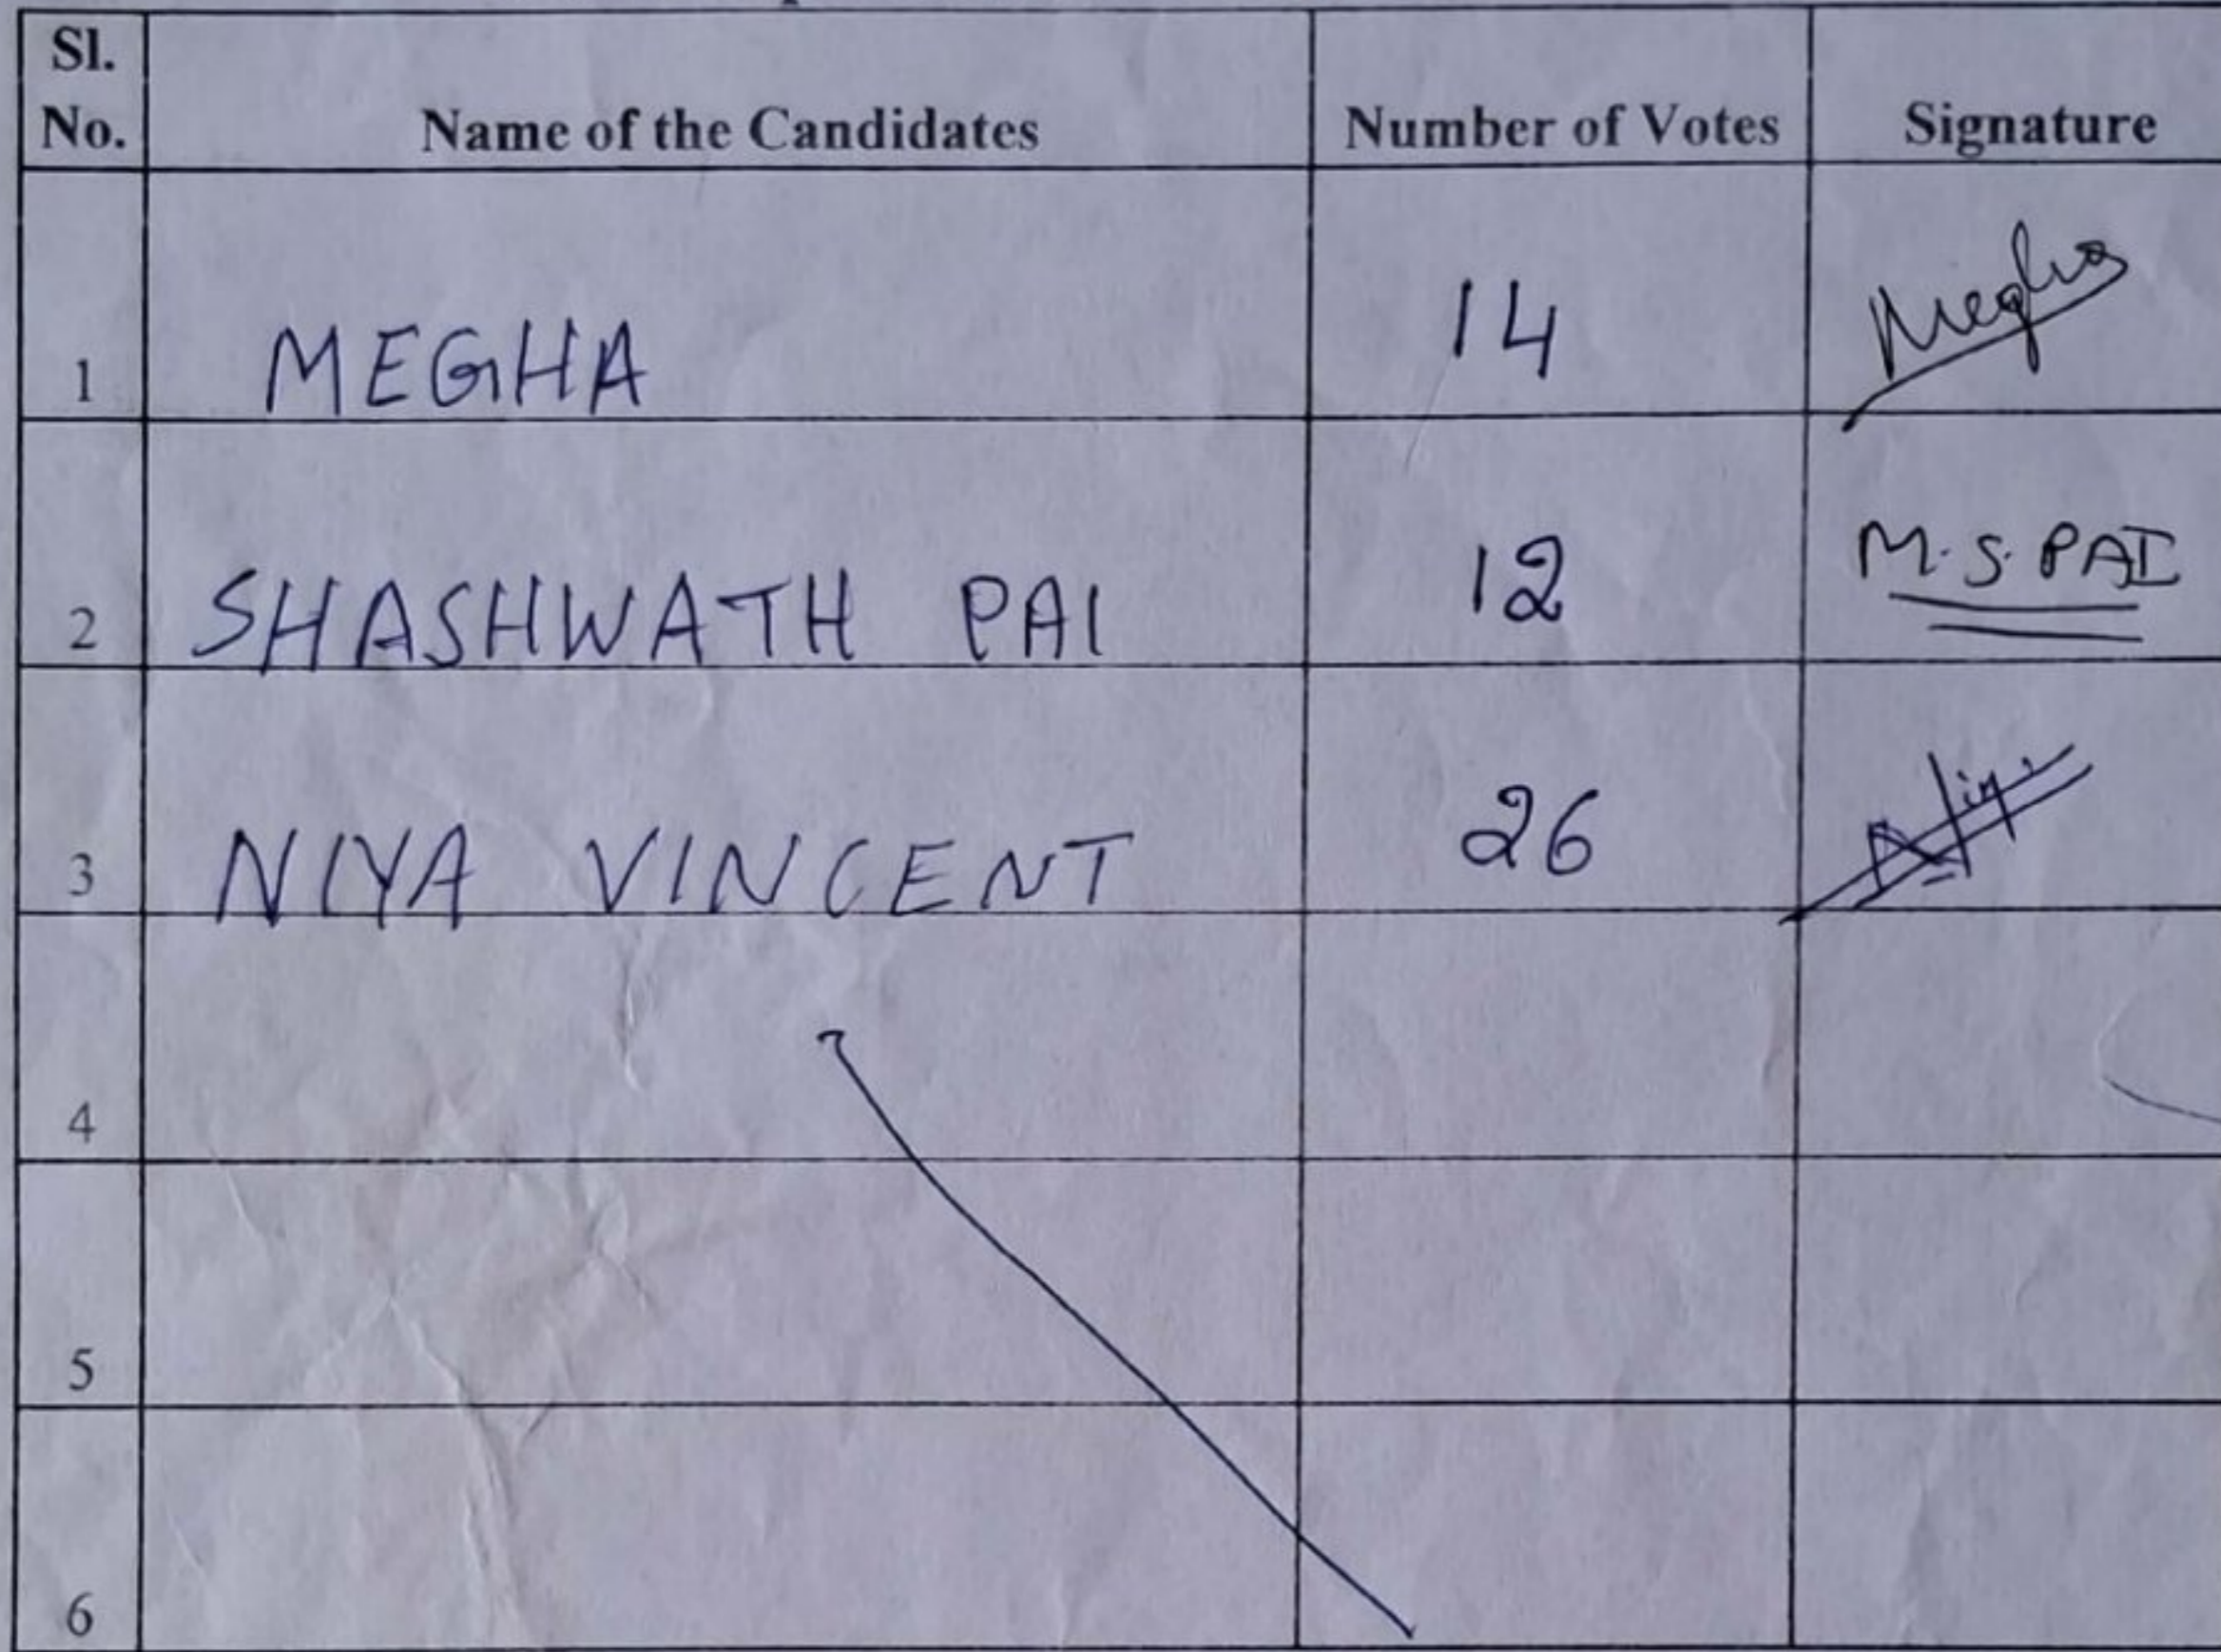 Sl. No. Name of the Candidates Number of Votes Signature
1 MEGHA 14 Megha
2 SHASHWATH PAI 12 M.S.PAI
3 NIYA VINCENT 26
4
5
6